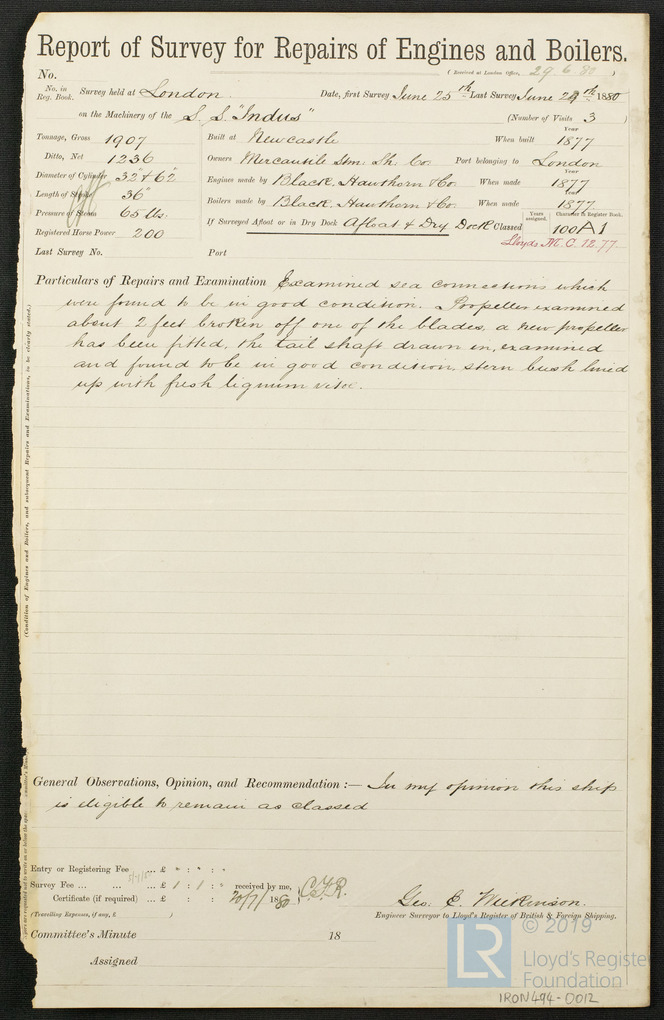 Report of Survey for Repairs of Engines and Boilers.
No. (Received at London Office, 29.6.80)
No. in Reg. Book. Survey held at London. Date, first Survey June 25th Last Survey June 29th 1880
on the Machinery of the S. S. "Indus" (Number of Visits 3)
Tonnage, Gross 1907 Built at Newcastle When built Year 1877
Ditto, Net 1236 Owners Mercantile Stm. Sh. Co. Port belonging to London
Diameter of Cylinder 32" & 62" Engines made by Black, Hawthorn & Co. When made Year 1877
Length of Stroke 36" Boilers made by Black, Hawthorn & Co. When made Year 1877
Pressure of Steam 65 lbs. If Surveyed Afloat or in Dry Dock Afloat & Dry Dock Classed Years assigned. Character in Register Book. 100A1
Registered Horse Power 200 Lloyds M.C. 12.77
Last Survey No. Port
Particulars of Repairs and Examination Examined sea connections which
were found to be in good condition. Propeller examined
about 2 feet broken off one of the blades, a new propeller
has been fitted, the tail shaft drawn in, examined
and found to be in good condition, stern bush lined
up with fresh lignum vitæ.
(Condition of Engines and Boilers, and subsequent Repairs and Examinations, to be clearly stated.)
General Observations, Opinion, and Recommendation :— In my opinion this ship
is eligible to remain as classed
Entry or Registering Fee ... £ " : " : "
Survey Fee ... ... ... £ 1 : 1 : " received by me,
Certificate (if required) ... £ : : 20/7/1880
(Travelling Expenses, if any, £ )
Geo. E. Wilkinson.
Engineer Surveyor to Lloyd's Register of British & Foreign Shipping.
Committee's Minute 18
Assigned
© 2019
LR
Lloyd's Register
Foundation
IRON494-0012